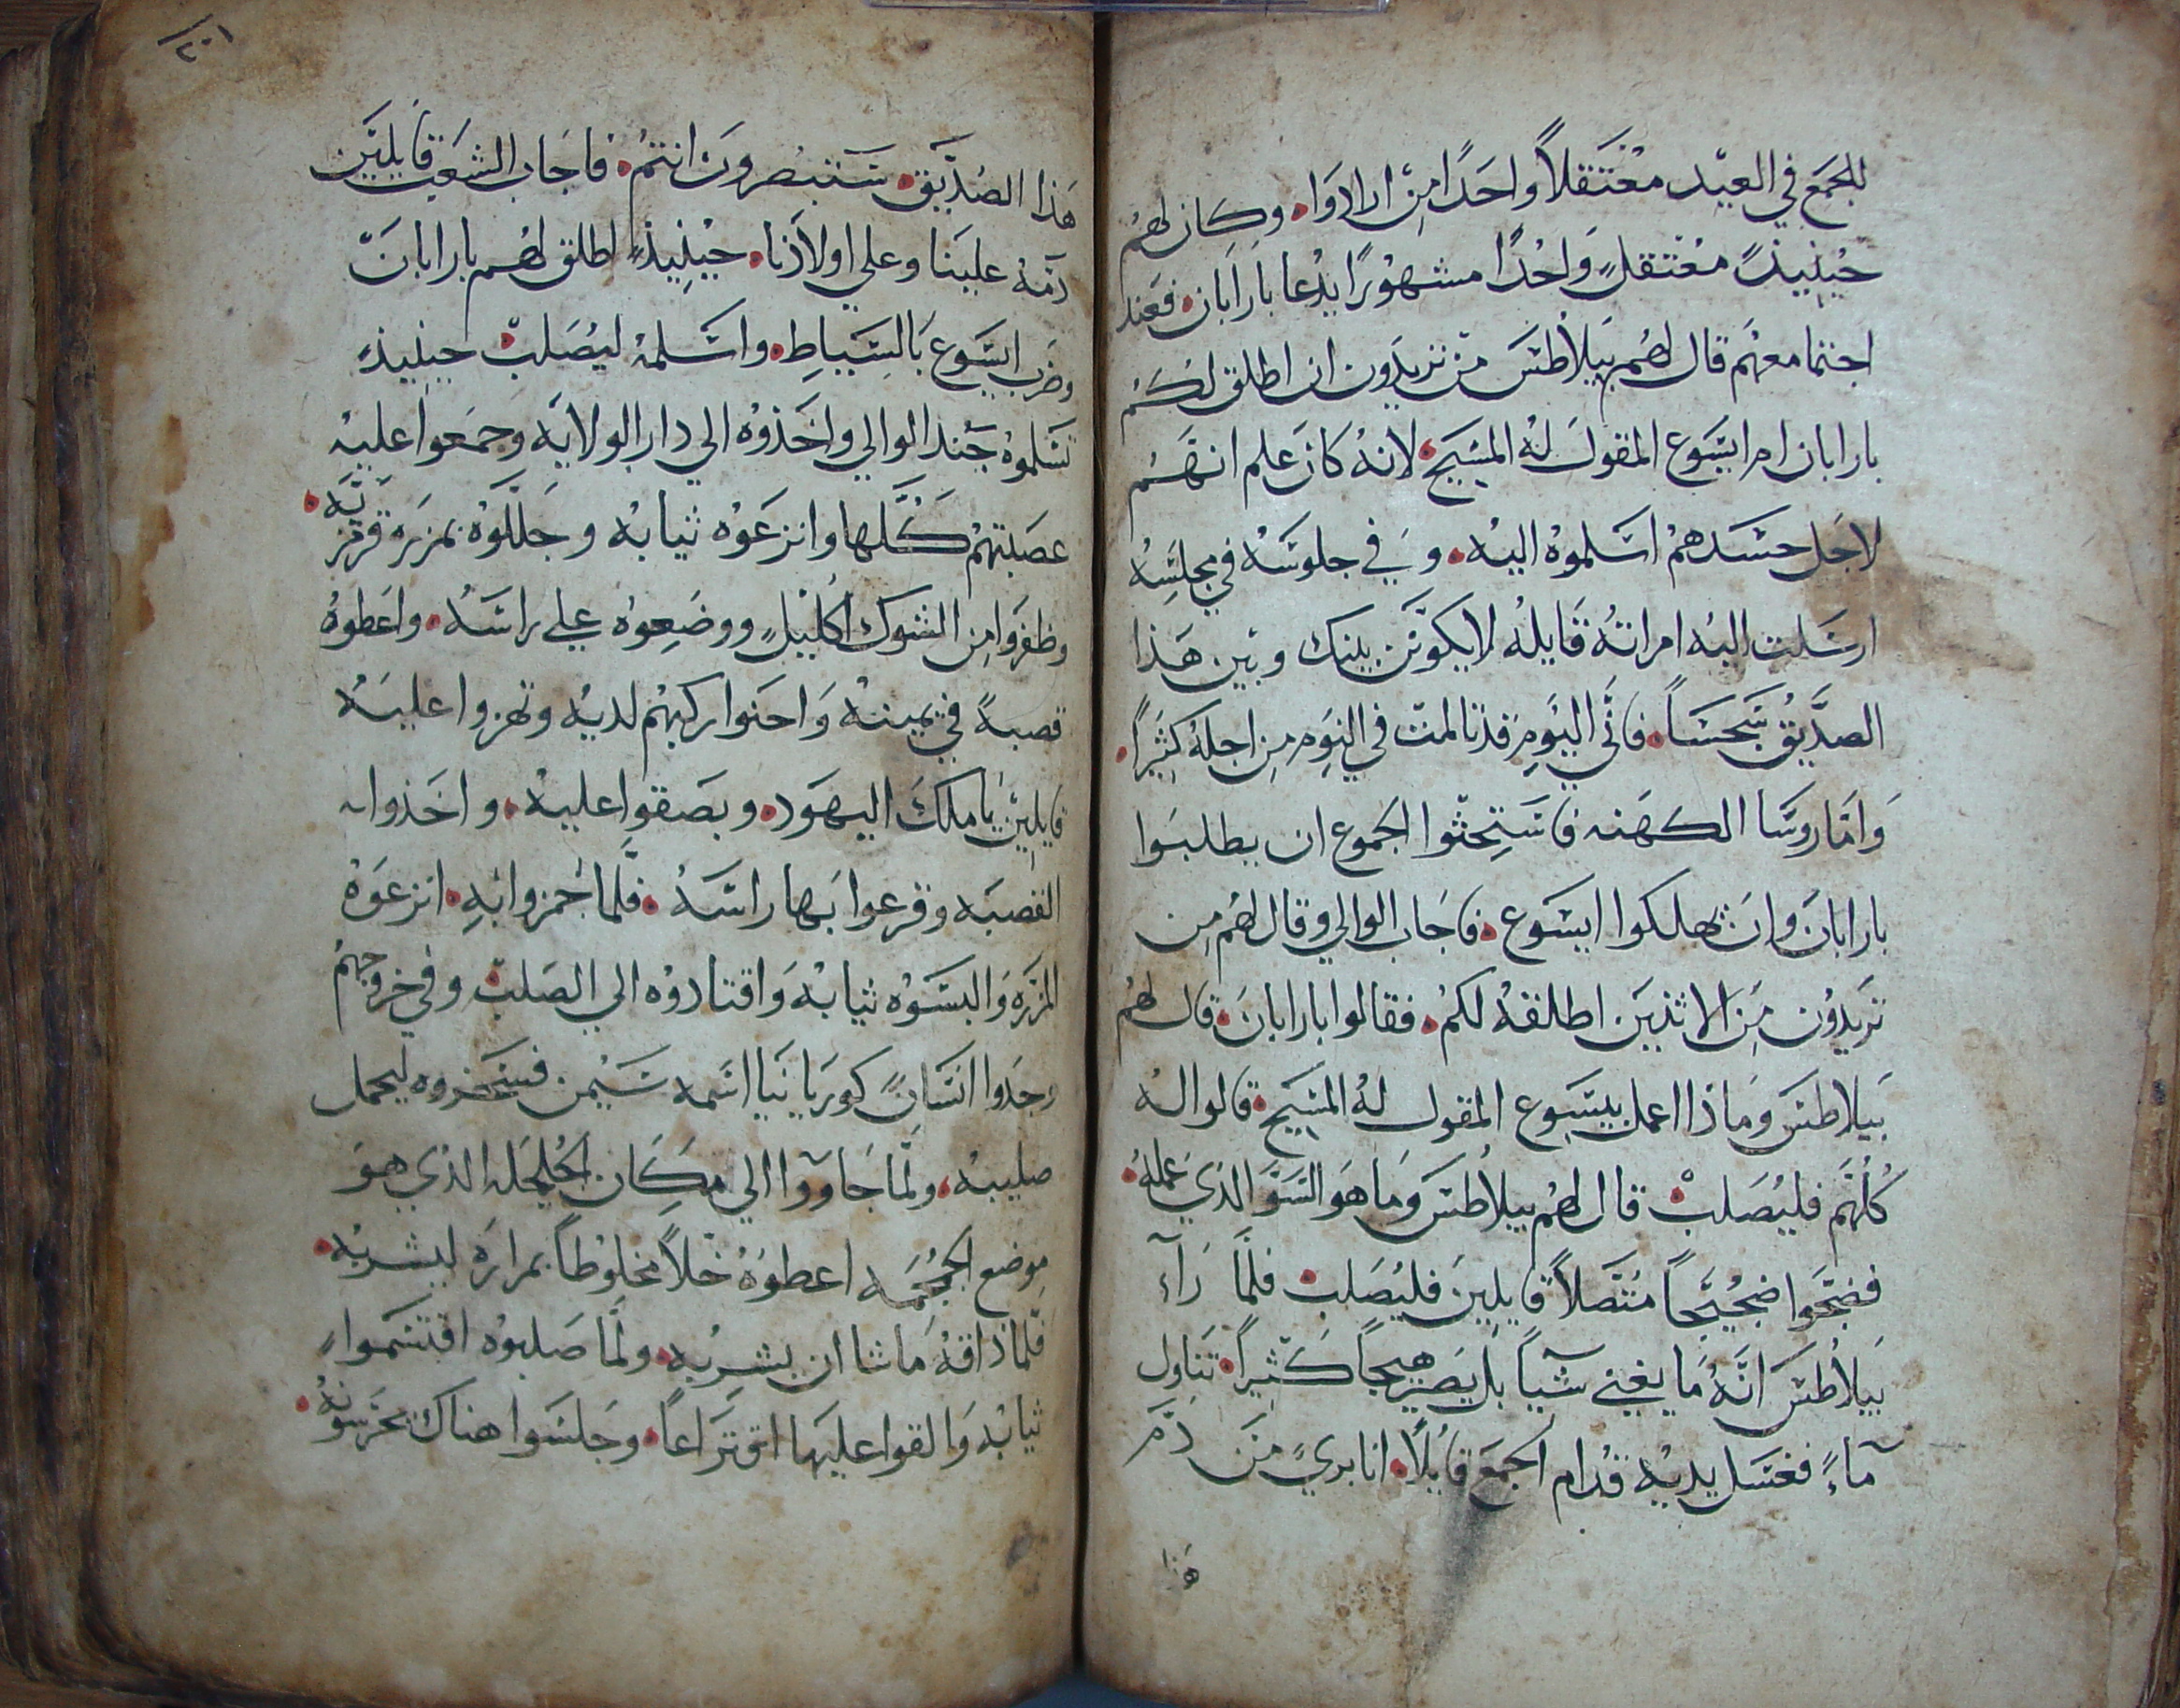 للجمع في العيد معتقلاً واحدًا من ارادوا وكان لهم
حينيذٍ معتقلٍ واحدًا مشهورًا يدعا بارابان فعند
اجتما معهم قال لهم بيلاطس من تريدون ان اطلق لكم
بارابان ام ايسوع المقول له المسيح لانه كان علم انهم
لاجل حسدهم اسلموه اليه وفي جلوسه في مجلسه
ارسلت اليه امراته قايله لا يكون بينك وبين هذا
الصديق بتحسًا فاني اليوم قد تالمت في اليوم من اجله كثيرًا
واما روسا الكهنه فاستحثوا الجموع ان يطلبوا
بارابان وان يهلكوا ايسوع فاجاب الوالي وقال لهم من
تريدون من الاثنين اطلقه لكم فقالوا بارابان قال لهم
بيلاطس وماذا اعمل بيسوع المقول له المسيح قالوا له
كلهم فليصلب قال لهم بيلاطس وما هو السو الذي عمله
فضجوا ضجيجًا متصلاً قايلين فليصلب فلما رآء
بيلاطس انه ما يغني شيًا بل يصير هيجًا كثيرًا تناول
مآءً فغسل يديه قدام الجمع قايلاً انا بريً من دم
هذا
٢٠١
هذا الصديق ستبصرون انتم فاجاب الشعب قايلين
دمه علينا وعلي اولادنا حينيذٍ اطلق لهم بارابان
وضرب ايسوع بالسياط واسلمه ليصلب حينيذ
تسلموه جند الوالي واخذوه الي دار الولايه وجمعوا عليه
عصبتهم كلها وانزعوه ثيابه وجللوه بمزره قرمزيه
وظفروا من الشوك اكليلٍ ووضعوه علي راسه واعطوه
قصبةً في يمينه واحنوا ركبهم لديه وتهزوا عليه
قايلين يا ملك اليهود وبصقوا عليه واخذوا
القصبه وقرعوا بها راسه فلما هزوا به انزعوه
المزره والبسوه ثيابه واقتادوه الي الصلب وفي خروجهم
وجدوا انسانً كوريانيا اسمه سيمن فسخروه ليحمل
صليبه ولما جاووا الي مكان الجلجله الذي هو
موضع الجمجمه اعطوه خلاً مخلوطًا بمراره ليشربه
فلما ذاقه ما شا ان يشربه ولما صلبوه اقتسموا
ثيابه والقوا عليها اقتراعًا وجلسوا هناك يحرسونه